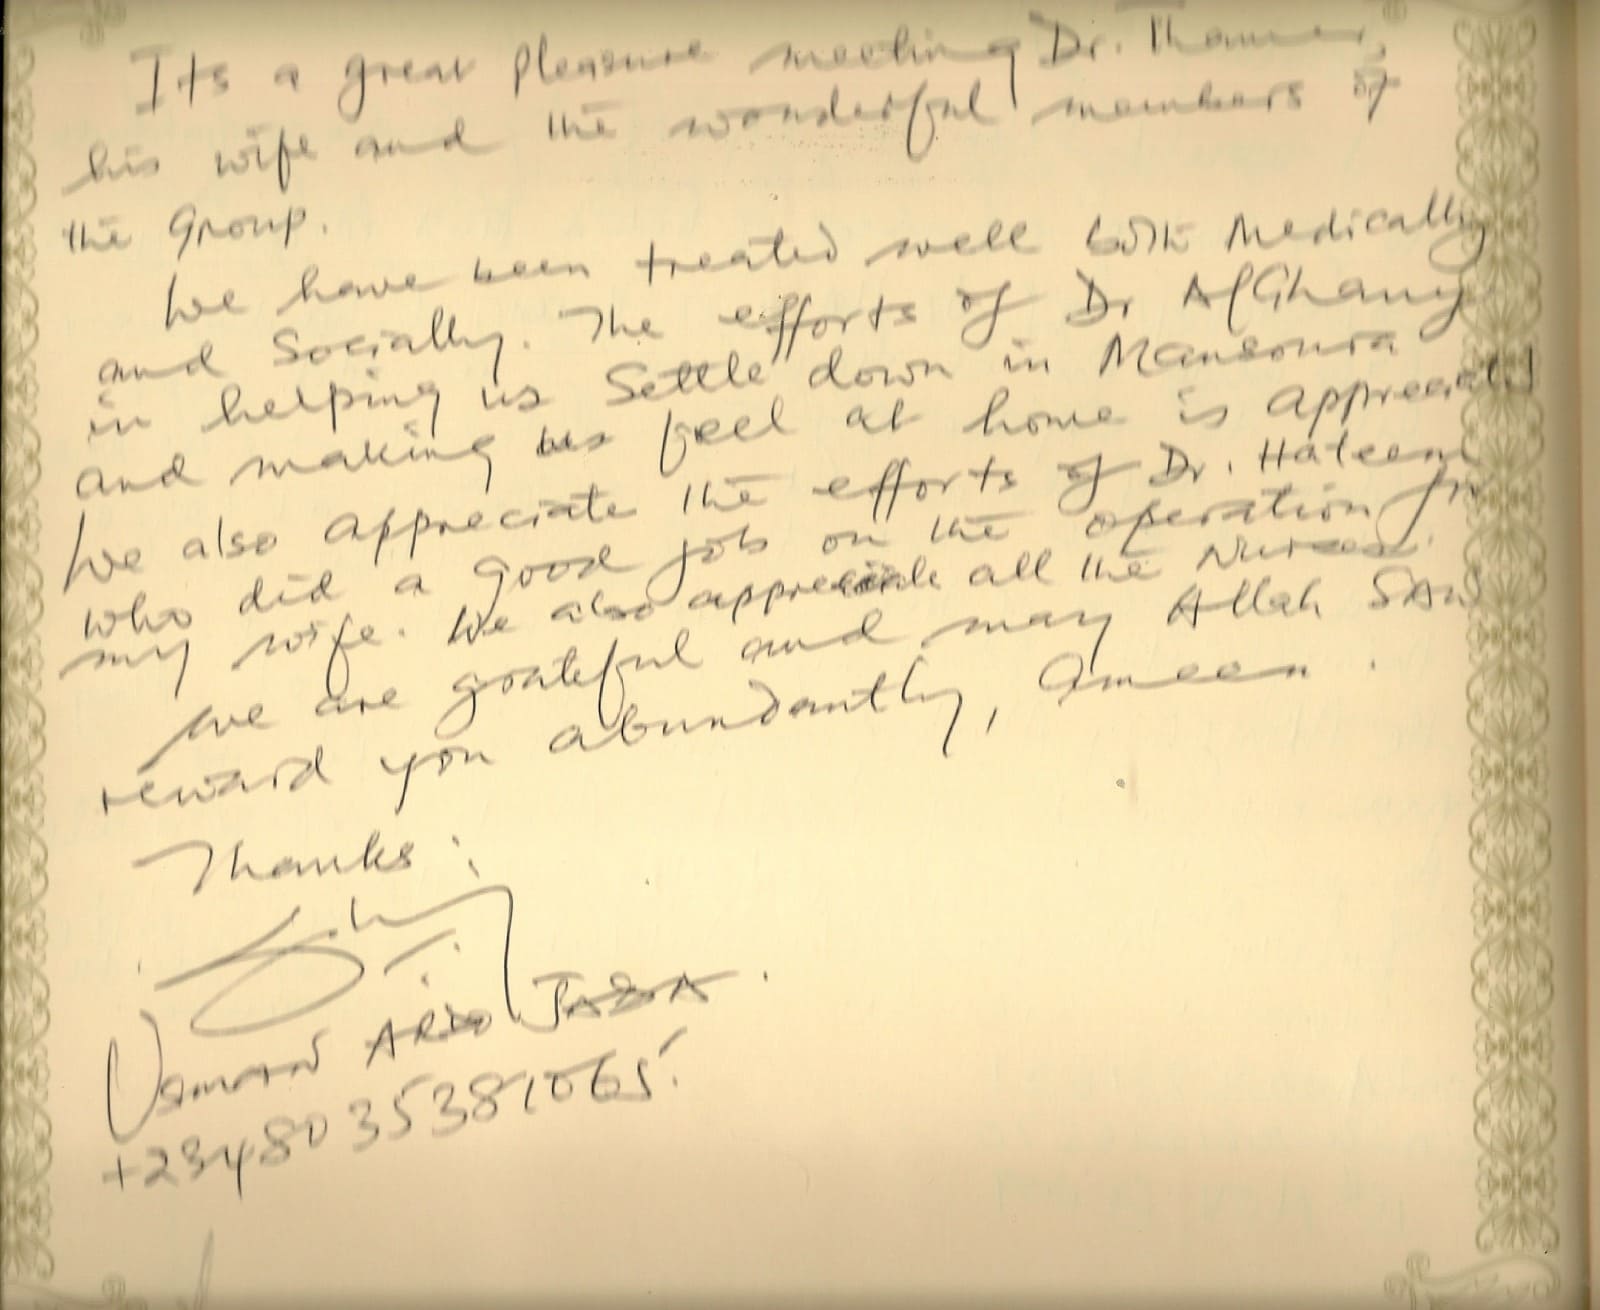 Its a great pleasure meeting Dr. Thamer,
his wife and the wonderful members of
the Group.
We have been treated well both Medically
and Socially. The efforts of Dr AlGhamy
in helping us Settle down in Mansoura
and making us feel at home is appreciated
We also appreciate the efforts of Dr. Hateem
who did a good job on the operation for
my wife. We also appreciate all the Nurses.
we are grateful and may Allah SAW
reward you abundantly, Ameen.
Thanks
Usman ARDO JABA.
+2348035381065.